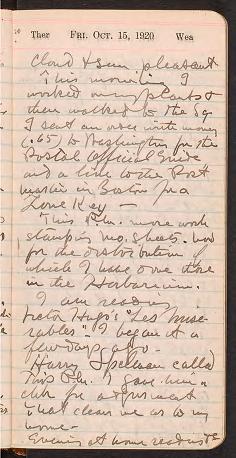 Ther Fri. Oct. 15, 1920 Wea
Cloud & sun pleasant
This morning I
worked on my plants &
then walked to the Sq
I sent an order with money
(.65) to Washington for the
Postal Official Guide
and a line to the Post
master in Boston for a
Zone Key —
This P.m. more work
stamping mo. sheets. now
for the distribution of
which I have one there
in the Herbarium.
I am reading
Victor Hugo's "Les Mise-
rables". I began it a
few days ago.
Harry Spelman called
this P.m. I gave him a
that
home —
Evening at home reading